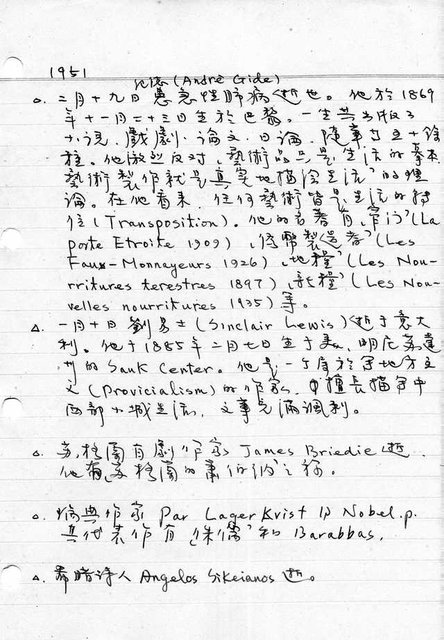 1951
紀德(André Gide)
△. 二月十九日患急性肺病逝世。他於1869
年十一月二十三日生於巴黎。一生共出版了
小說、戲劇、論文、日論、隨筆等五十餘
種。他激烈反對「藝術品只是生活的摹本
藝術製作就是真實地描繪生活」的理
論。在他看來,任何藝術皆是生活的轉
位(Transposition)。他的名著有「窄門」(La
porte Etroite 1909)、「偽幣製造者」(Les
Faux-Monnayeurs 1926)、「地糧」(Les Nou-
rritures terestres 1897)、「新糧」(Les Nou-
velles nourritures 1935)等。
△. 一月十日劉易士(Sinclair Lewis)逝于意大
利。他于1885年二月七日生于美、明尼蘇達
州的Sauk Center。他是一個屬於地方主
義(Provicialism)的作家,擅長描寫中
西部小城生活,文筆充滿諷刺。
△. 蘇格蘭有劇作家 James Briedie 逝.
他有蘇格蘭的蕭伯納之稱。
△. 瑞典作家 Par Lagerkvist 得 Nobel.p.
其代表作有「侏儒」和 Barabbas.
△. 希臘詩人 Angelos Sikeianos 逝。